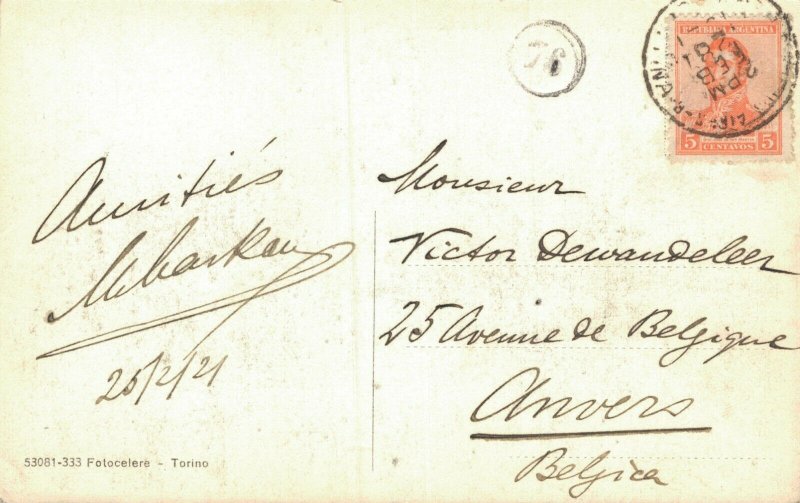 76
REPUBLICA ARGENTINA
5 CENTAVOS 5
Amitiés
25/2/21
Monsieur
Victor Dewandeleer
25 Avenue de Belgique
Anvers
Belgica
53081-333 Fotocelere - Torino